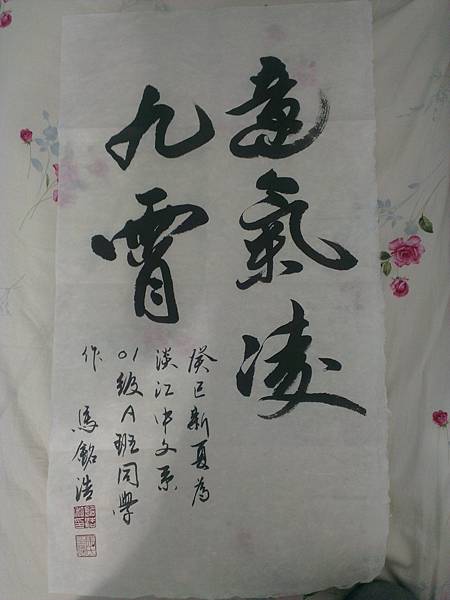 意氣凌
九霄
癸巳新夏為
淡江中文系
01級A班同學
作 馬銘浩